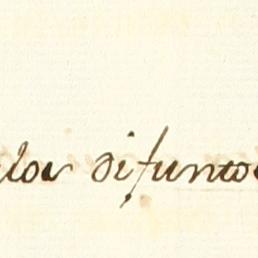 los difuntos